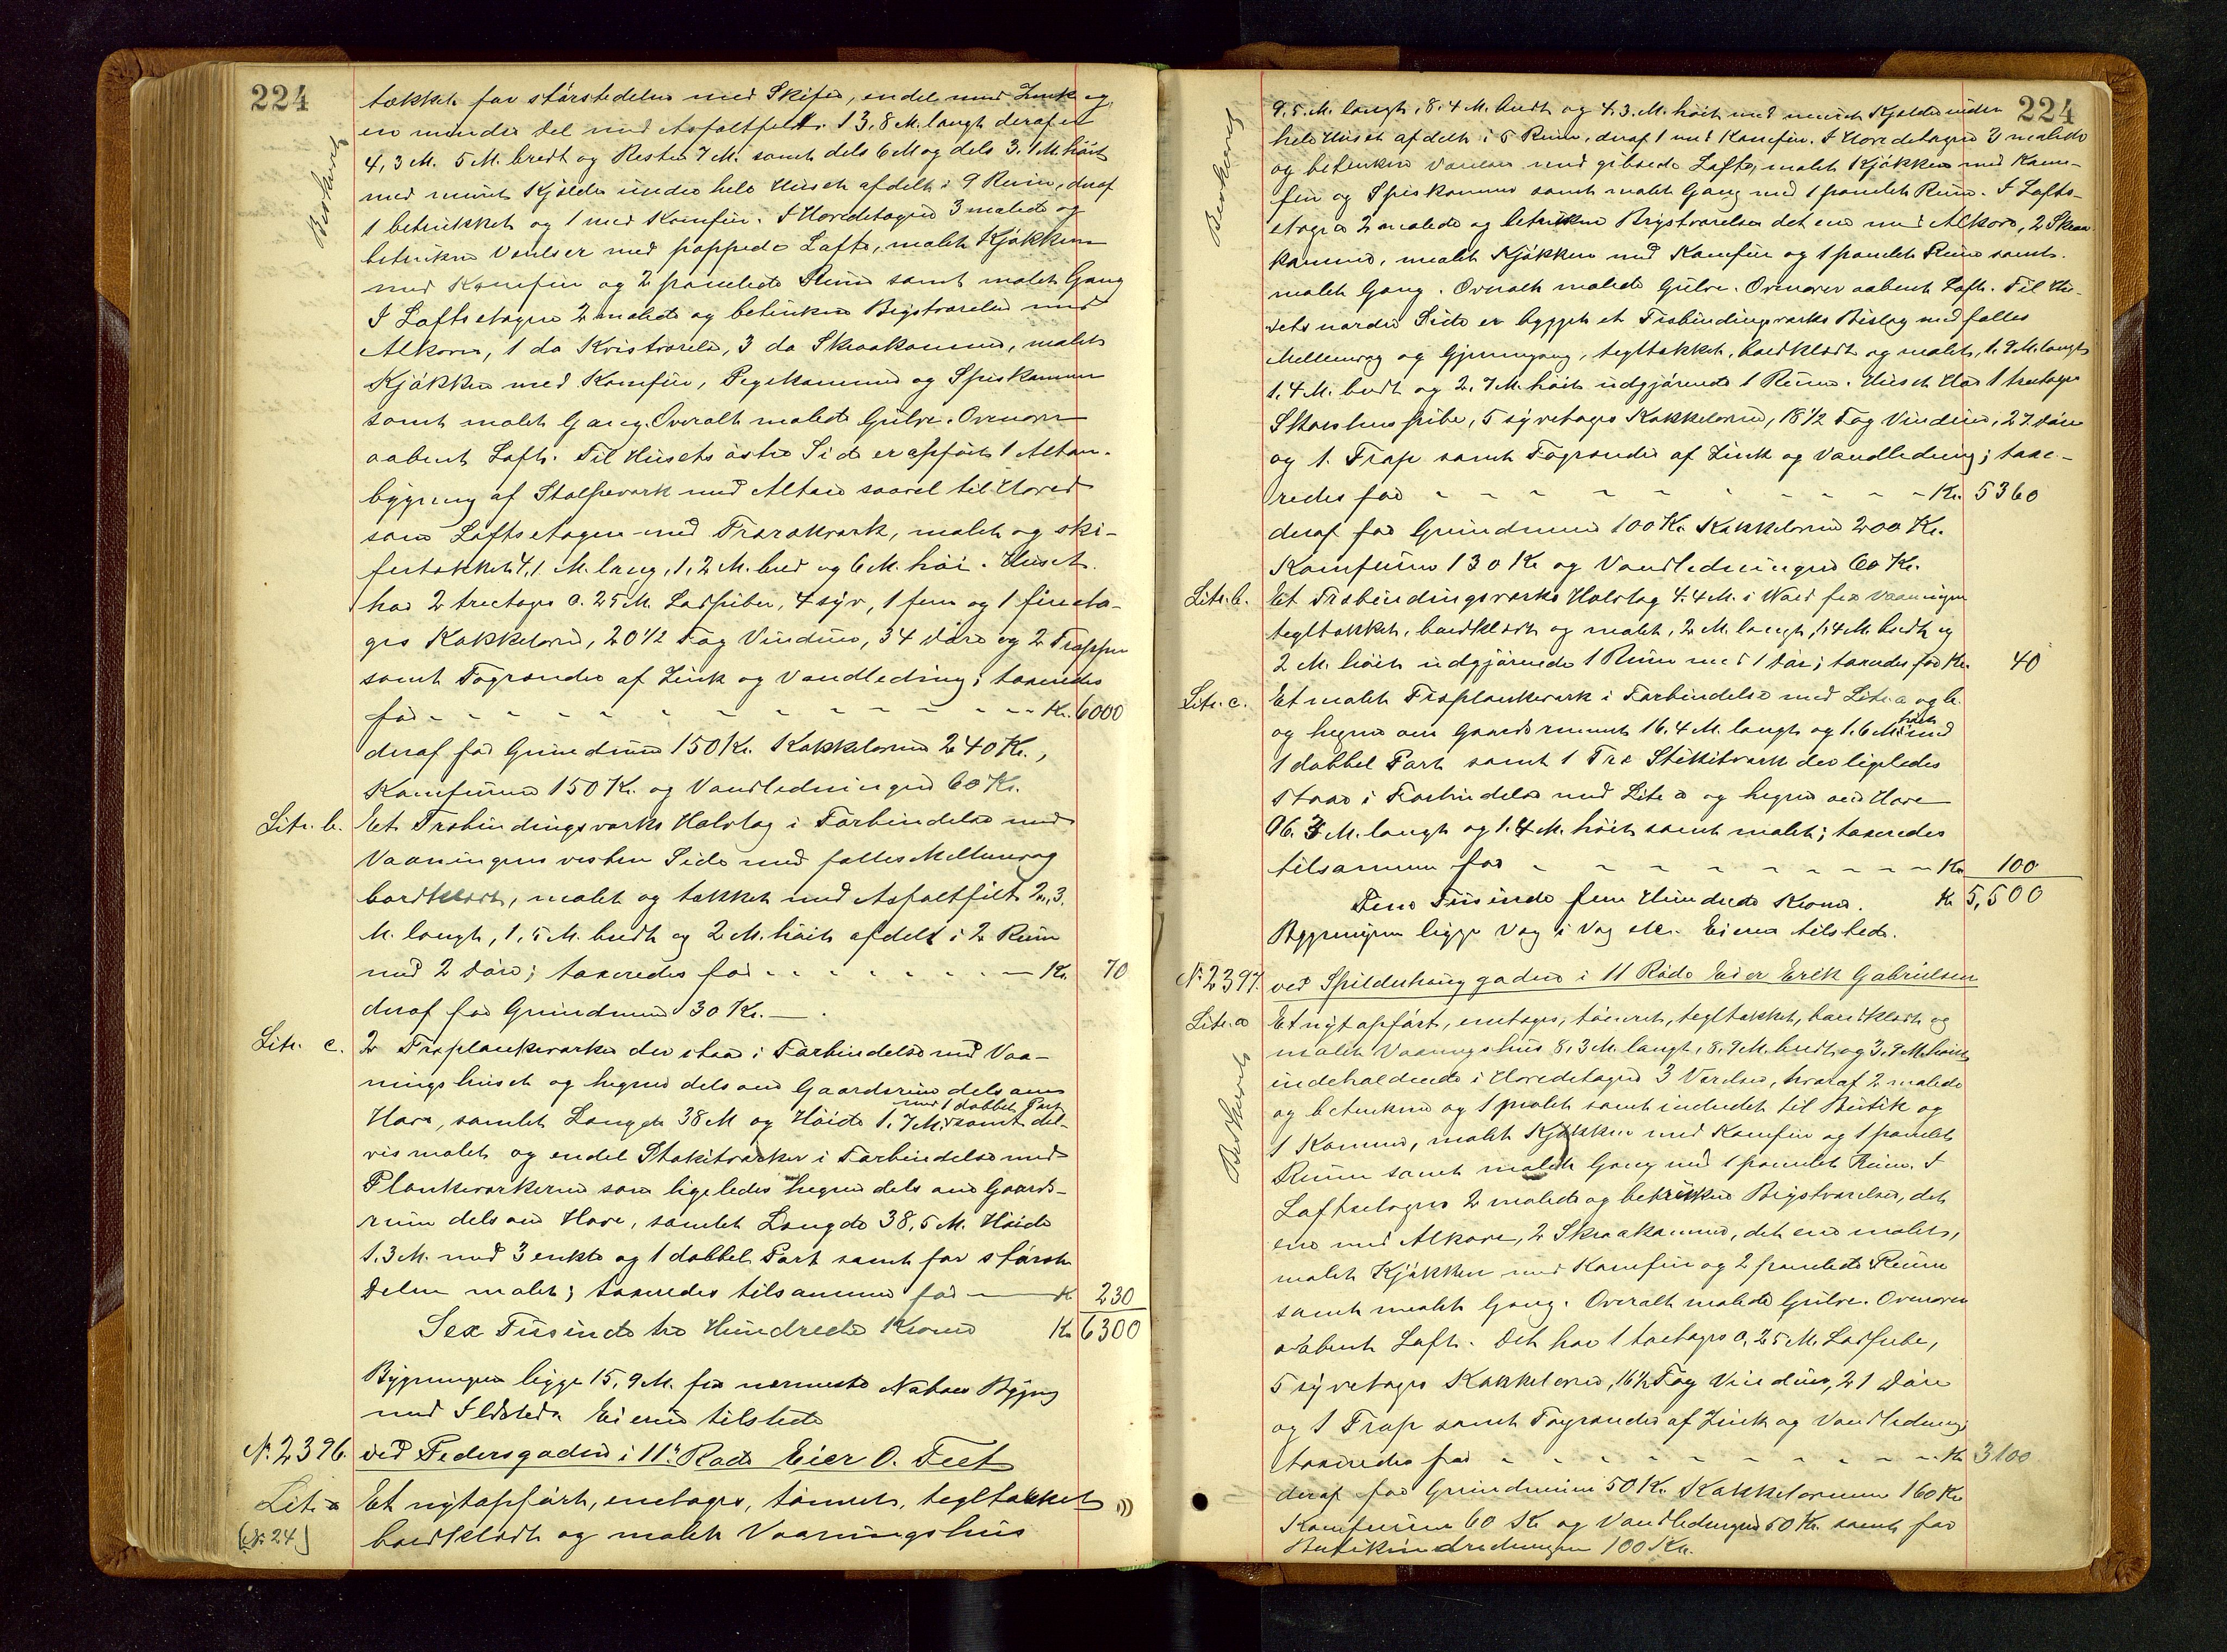 224
tækket for størstedelen med Skifer, endel med Zink og
en mindre del med Asfaltfilt. 13,8 M. langt deraf er
4,3 M. 5 M. bredt og Resten 7 M. samt dels 6 M og dels 3.1 M. høit
med muret Kjelder under hele Huset afdelt i 9 Rum, deraf
1 betrukket og 1 med Komfur. I Hovedetagen 3 malede og
betrukne Værelser med pappede Lofte, malet Kjøkken
med Komfur og 2 panelede Rum samt malet Gang
I Loftsetagen 2 malede og betrukne Bigstværelser med
Alkover, 1 do Kvistværelse, 3 do Skraakammer, malet
Kjøkken med Komfur, Pigekammer og Spiskammer
samt malet Gang. Overalt malede Gulve. Ovenover
aabent Loft. Til Husets østre Side er opført 1 Altan-
bygning af Stolpeværk med Altan saavel til Hoved
som Loftsetagen med Trærækværk, malet og ski-
fertækket 4,1 M. lang, 1,2 M. bred og 6 M. høi. Huset
har 2 treetages 0.25 M. Lodpiber, 4 syv, 1 fem og 1 fireeta-
ges Kakkelovne, 20 1/2 Fag Vinduer, 34 Døre og 2 Trapper
samt Tagrender af Zink og Vandledning; taxeredes
for - - - - - - - - - - - - Kr. 6000
deraf for Grundmur 150 Kr. Kakkelovne 240 Kr.,
Komfurene 150 Kr. og Vandledningen 60 Kr.
Litr. b. Et Træbindingsværks Halvtag i Forbindelse med
Vaaningens vestre Side med fælles Mellemvæg
bordklædt, malet og tækket med Asfaltfilt 2,3.
M. langt, 1,5 M. bredt og 2 M. høit afdelt i 2 Rum
med 2 Døre; taxeredes for - - - - - - - Kr. 70
deraf for Grundmur 30 Kr.
Litr. c. 2 Træplankeværker der staar i Forbindelse med Vaa-
ningshuset og hegner dels om Gaardsrum dels om
med 1 dobbel Port
Have, samlet Længde 38 M og Høide 1.7 M. samt del-
vis malet og endel Stakitværker i Forbindelse med
Plankeværkerne som ligeledes hegner dels om Gaards-
rum dels om Have, samlet Længde 38,5 M. Høide
1.3 M. med 3 enkle og 1 dobbel Port samt for største
Delen malet; taxeredes tilsammen for — Kr 230
Sex Tusinde tre Hundrede Kroner Kr 6300
Bygningen ligge 15,9 M. fra nærmeste Naboes Bygng
med Ildsted. Eieren tilstede
No. 2396. ved Pedersgaden i 11te Rode Eier O. Feet
Litr a Et nytopført, enetages, tømret, tegltækket
bordklædt og malet Vaaningshus
224
9,5 M. langt, 8.4 M. bredt og 4.3 M. høit med muret Kjelder under
hele Huset afdelt i 5 Rum, deraf 1 med Komfur. I Hovedetagen 3 malede
og betrukne Værelser med gibsede Lofte, malet Kjøkken med Kom-
fur og Spiskammer samt malet Gang med 1 panelet Rum. I Lofts-
etagen 2 malede og betrukne Bigstværelser det ene med Alkove, 2 Skraa
kammer, malet Kjøkken med Komfur og 1 panelet Rum samt
malet Gang. Overalt malede Gulve. Ovenover aabent Loft. Til Hu-
sets nordre Side er bygget et Træbindingsværks Bislag med fælles
Mellemvæg og Gjennemgang, tegltækket, bordklædt og malet, 1.9 M. langt
1.4 M. bredt og 2.7 M. høit udgjørende 1 Rum. Huset Har 1 treetages
Skorstenspibe, 5 syvetages Kakkelovne, 18 1/2 Fag Vinduer, 27 Døre
og 1. Trap samt Tagrender af Zink og Vandledning; taxe-
redes for - - - - - - - - - - Kr. 5360
deraf for Grundmur 100 Kr. Kakkelovne 200 Kr.
Komfurene 130 Kr og Vandledningen 60 Kr.
Litr. b. Et Træbindingsværks Halvtag 4.4 M. i Nord fra Vaaningen
tegltækket, bordklædt og malet, 2 M. langt, 1.4 M. bredt og
2 M. høit udgjørende 1 Rum med 1 Dør; taxeredes for Kr. 40
Litr. c. Et malet Træplankeværk i Forbindelse med Litr. a og b.
høit
og hegner om Gaardsrummet 16.4 M. langt og 1.6 M. med
1 dobbel Port samt 1 Træ Stakitværk der ligeledes
staar i Forbindelse med Litr a og hegner om Have
M. langt og 1.4 M. høit samt malet; taxeredes
tilsammen for - - - - - - - - - Kr 100
Fem Tusinde fem Hundrede Kroner. Kr 5,500
Bygningen ligge Væg i Væg etc. Eieren tilstede.
No. 2397. ved Spilderhauggaden i 11 Rode Eier Erik Gabrielsen
Litr. a Et nytopført, enetages, tømret, tegltækket, bordklædt og
malet Vaaningshus 8.3 M. langt, 8.9 M. bredt og 3.9 M. høit
indeholdende i Hovedetagen 3 Værelser, hvoraf 2 malede
og betrukne og 1 malet samt indredet til Butik og
1 Kammer, malet Kjøkken med Komfur og 1 panelet
Rum samt malet Gang med 1 panelet Rum. I
Loftsetagen 2 malede og betrukne Bigstværelser, det
ene med Alkove, 2 Skraakammer, det ene malet,
malet Kjøkken med Komfur og 2 panelede Rum
samt malet Gang. Overalt malede Gulve. Ovenover
aabent Loft. Det har 1 toetages 0,25 M. Lodpibe,
5 syvetages Kakkelovne, 16 1/2 Fag Vinduer, 21 Døre
og 1 Trap samt Tagrender af Zink og Vandledning;
taxeredes for - - - - - - - - - Kr 3100
deraf for Grundmuren 50 Kr. Kakkelovnene 160 Kr
Komfurene 60 Kr og Vandledningen 50 Kr. samt for
Butikindredningen 100 Kr.